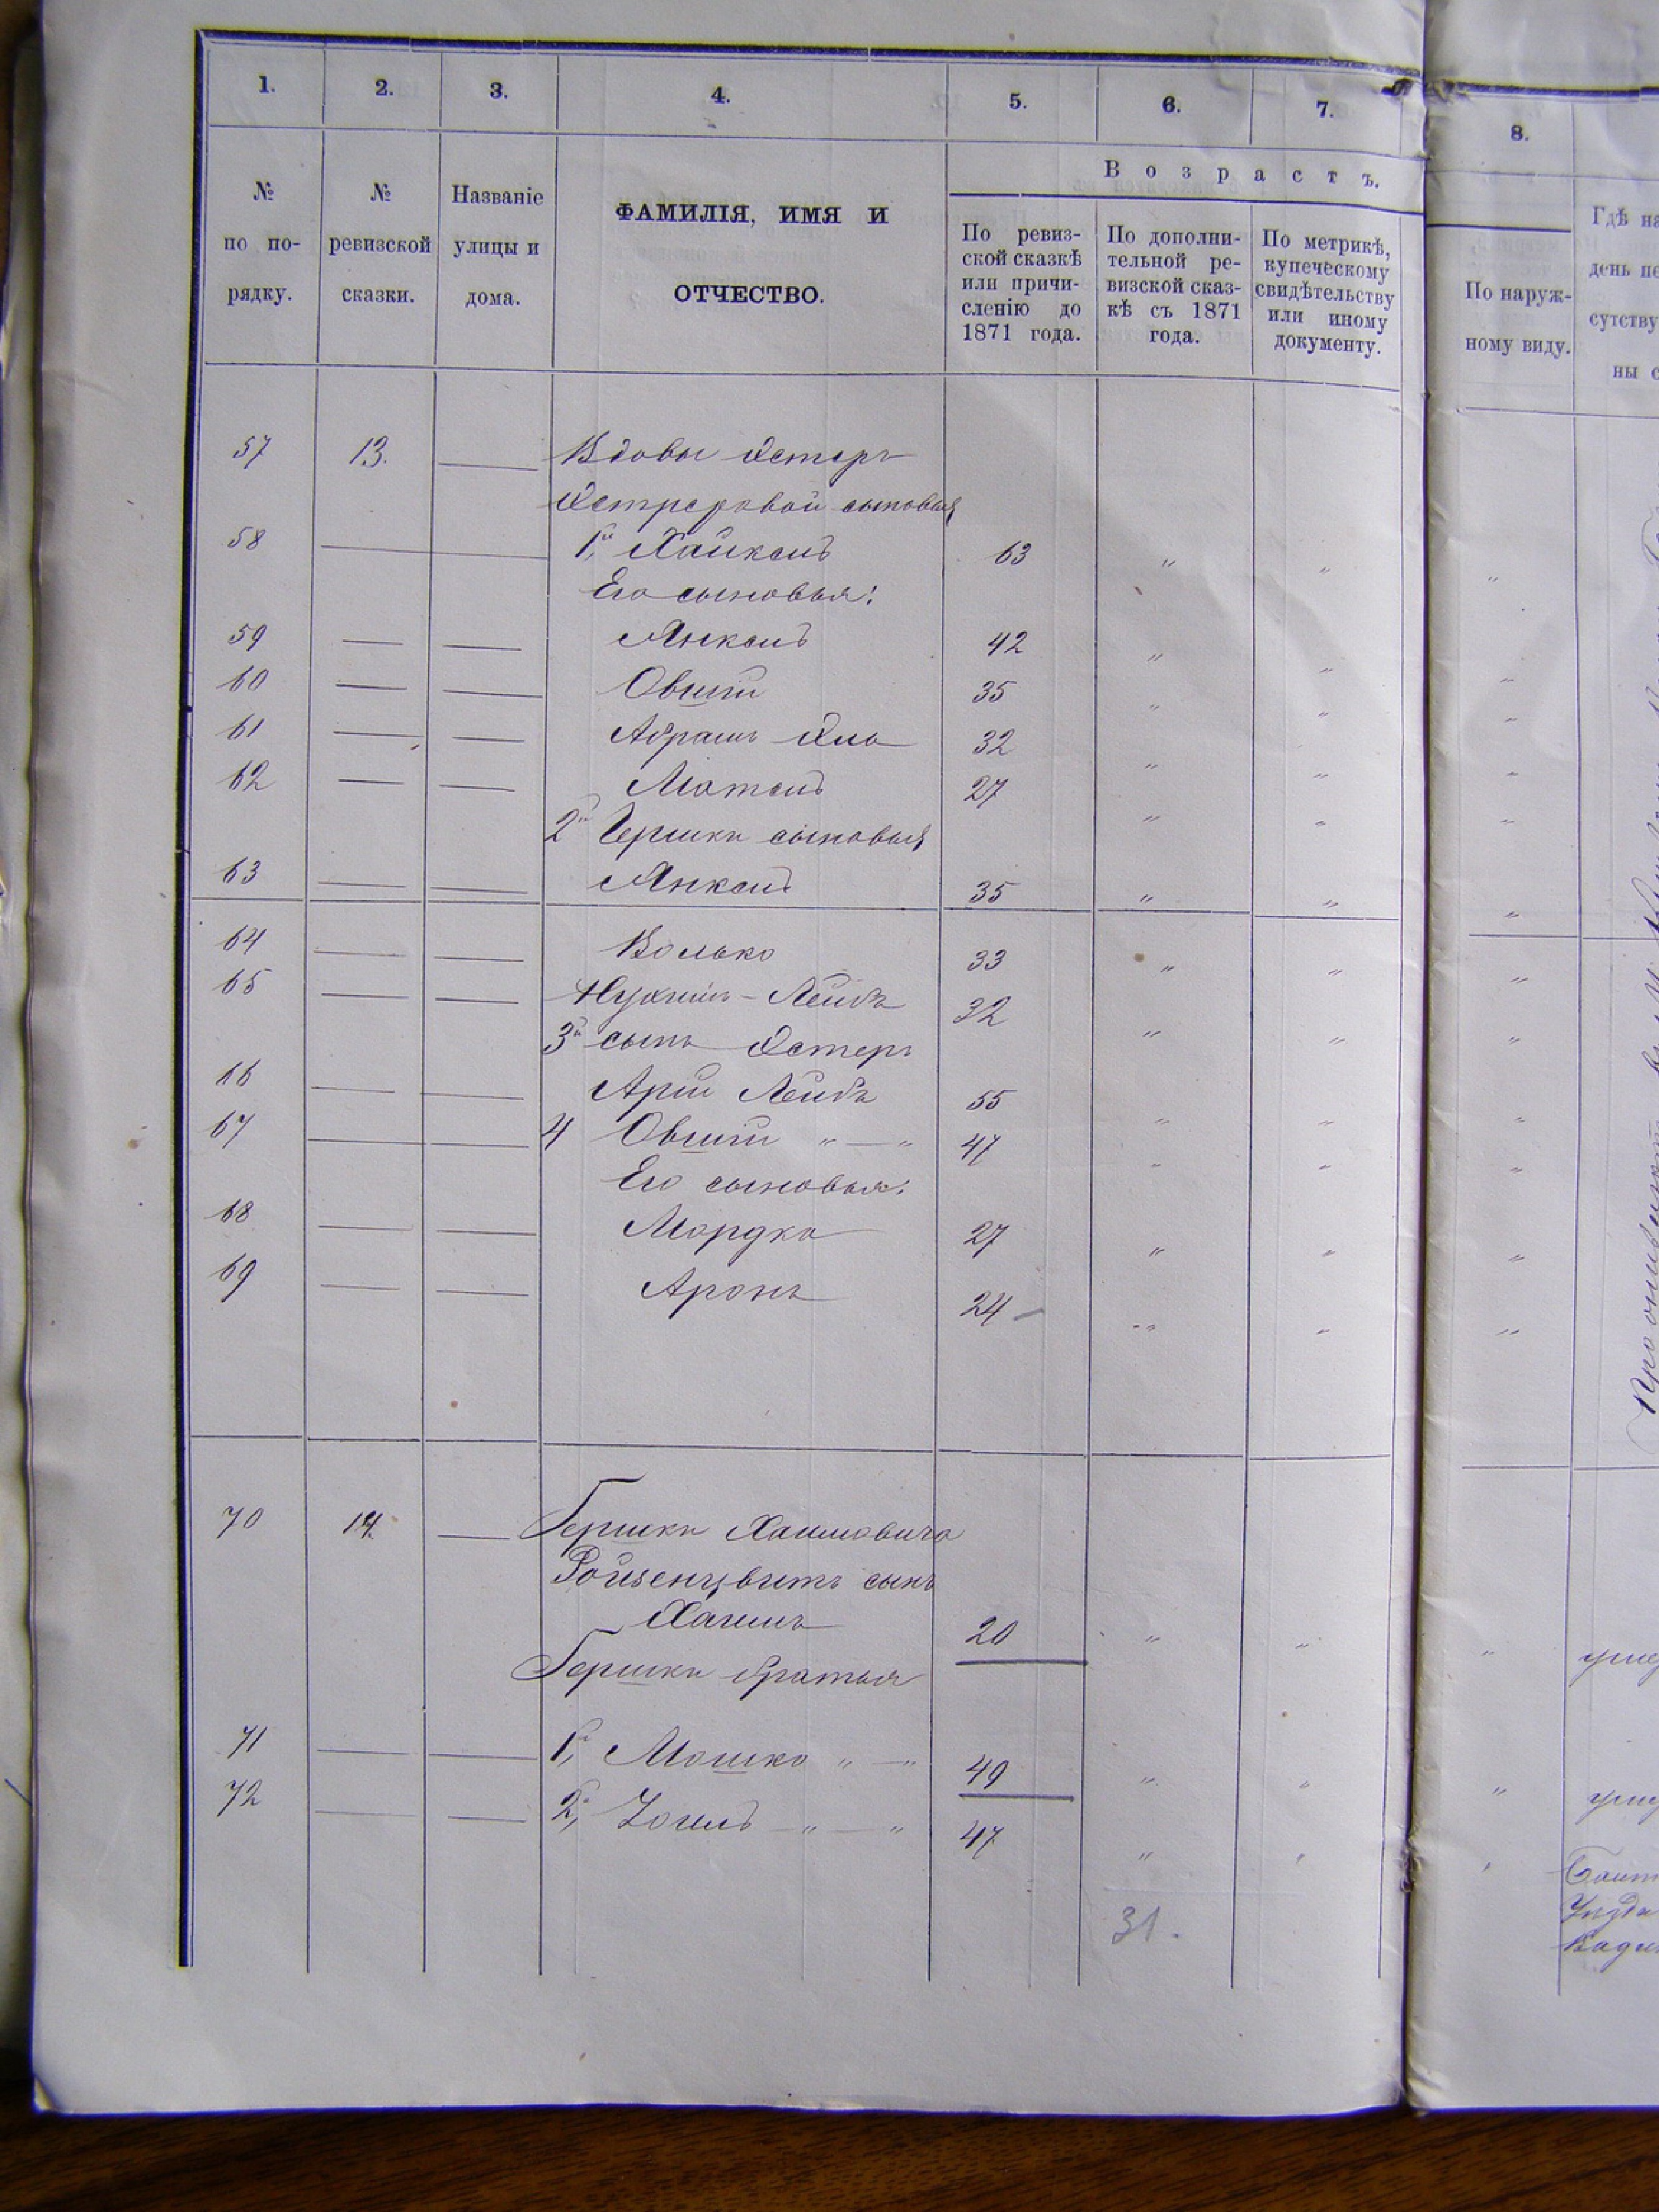 1. 2. 3. 4. 5. 6. 7. 8.
Возрастъ.
№ по по-рядку.
№ ревизской сказки.
Названіе улицы и дома.
ФАМИЛІЯ, ИМЯ И ОТЧЕСТВО.
По ревиз-ской сказкѣ или причи-сленію до 1871 года.
По дополни-тельной ре-визской сказ-кѣ съ 1871 года.
По метрикѣ, купеческому свидѣтельству или иному документу.
По наруж-ному виду.
Гдѣ на
день пе
сутству
ны с
57 13. — Вдовы Эстеръ
сыновья
58 — 1й, Хаикель 63 " " "
Его сыновья:
59 — — Янкель 42 " " "
60 — — Овшій 35 " " "
61 — — Абрамъ Эль 32 " " "
62 — — Мотель 27 " " "
2й Гершки сыновья
63 — — Янкель 35 " " "
64 — — Волько 33 " " "
65 — — Нухимъ-Лейбъ 32 " " "
3й сынъ Эстеръ
66 — — Арій Лейбъ 55 " " "
67 — 4 Овшій " — " 47 " " "
Его сыновья:
68 — — Мордко 27 " " "
69 — — Аронъ 24 " " "
70 14. — Гершки Хаимовича
Ройзенцвитъ сынъ
Хаимъ 20 " " "
Гершки братья
71 — — 1й, Мошко " — " 49 " " "
72 — — 2й, Іоиль — " — " 47 " " "
31.